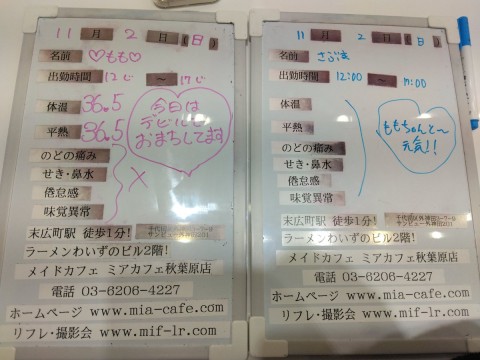 11 月 2 日 (日)
名前 ♡もも♡
出勤時間 12じ 〜 17じ
体温 36.5
平熱 36.5
今日は
デビルで
おまちしてます
のどの痛み
せき・鼻水
倦怠感
味覚異常
×
末広町駅 徒歩1分!
ラーメンわいずのビル2階!
メイドカフェ ミアカフェ秋葉原店
電話 03-6206-4227
ホームページ www.mia-cafe.com
リフレ・撮影会 www.mif-lr.com
11 月 2 日 (日)
名前
出勤時間 12:00 〜 17:00
体温
平熱
ももちゃんと〜
元気!!
のどの痛み
せき・鼻水
倦怠感
味覚異常
末広町駅 徒歩1分!
ラーメンわいずのビル2階!
メイドカフェ ミアカフェ秋葉原店
電話 03-6206-4227
ホームページ www.mia-cafe.com
リフレ・撮影会 www.mif-lr.com